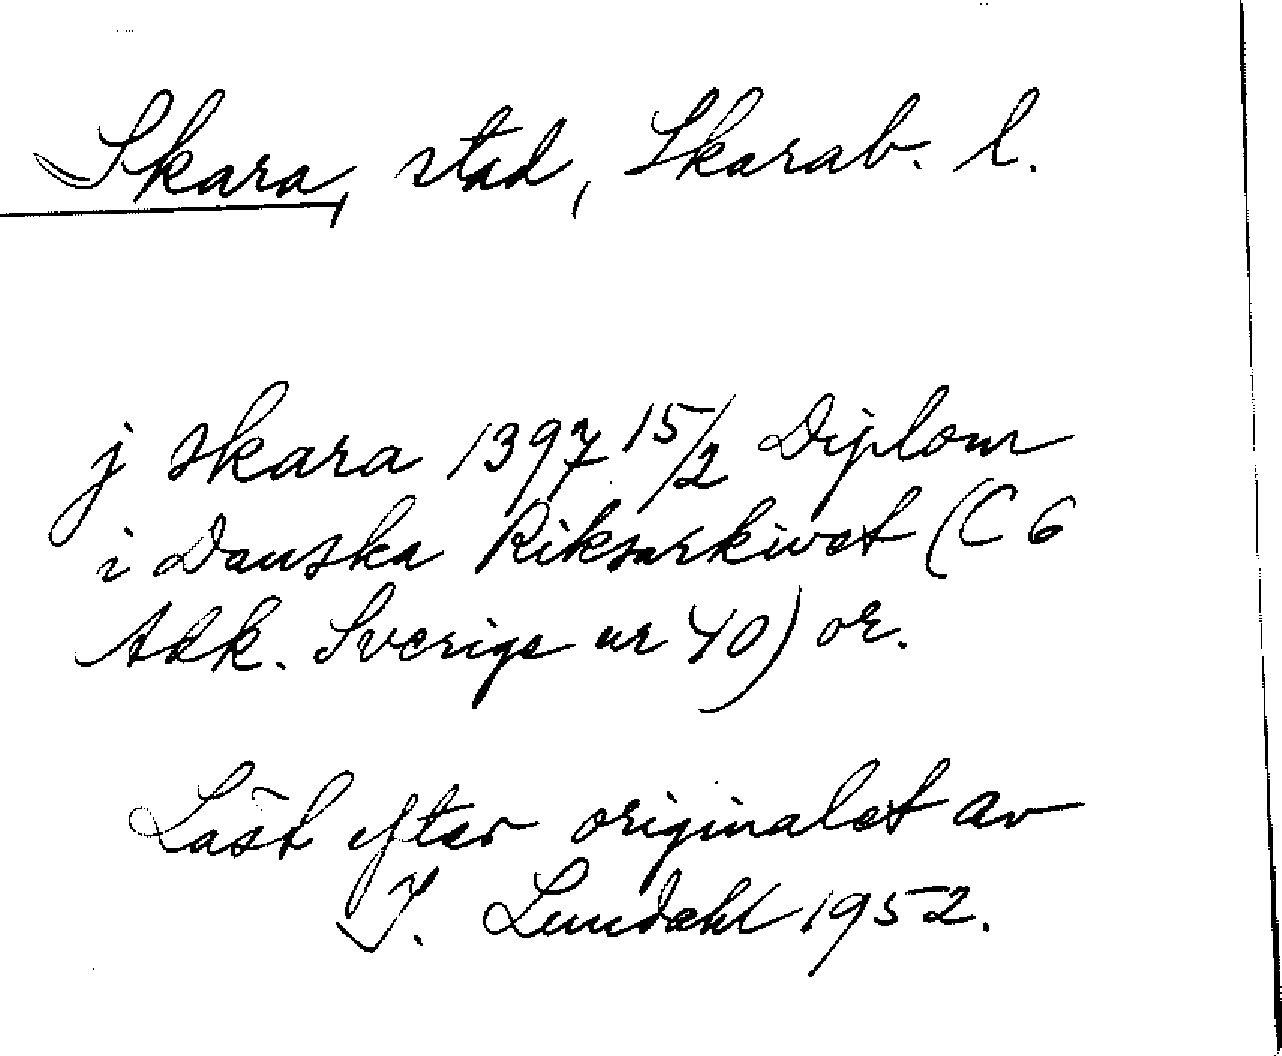 Skara, stad, Skarab. l.
j skara 1397 15/2 Diplom
i Danska Riksarkivet (C 6
Adk. Sverige nr 40) or.
Läst efter originalet av
I. Lundahl 1952.